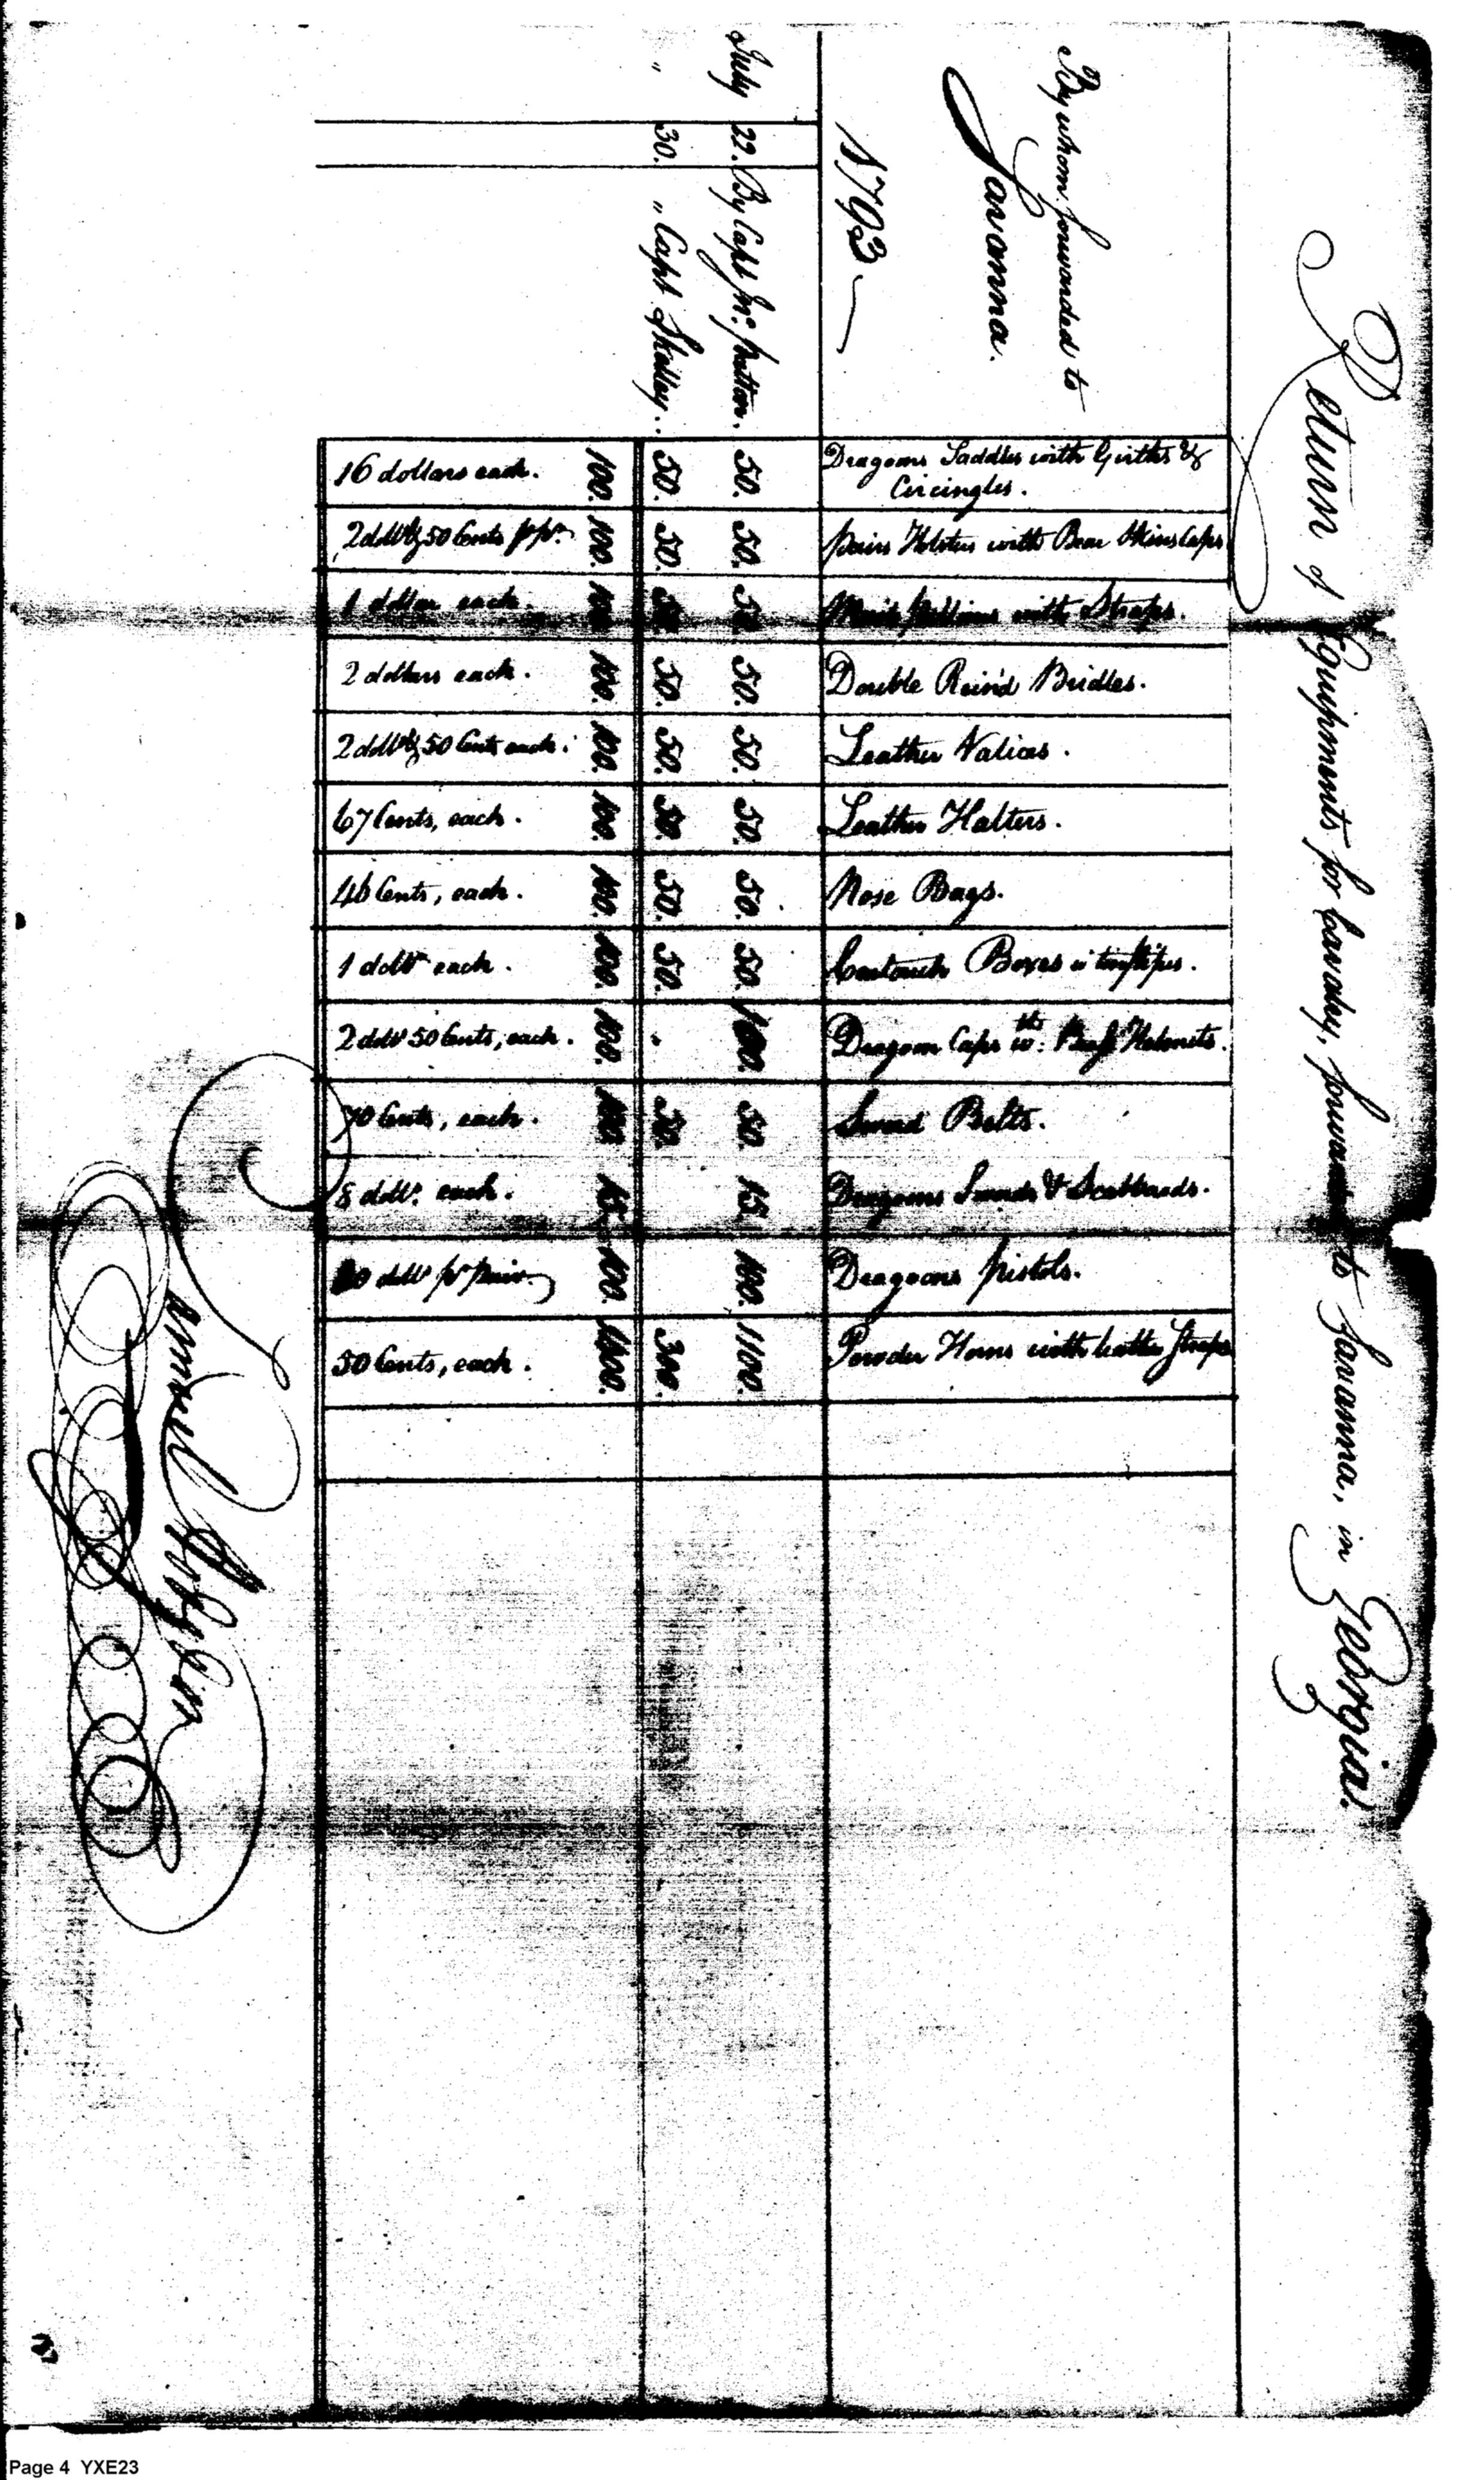 Return of Equipments for Cavalry, forwarded to Savanna, in Georgia.
By whom forwarded to
Savanna.
1793
Dragoons Saddles with Girths &
Circingles.
pairs Holsters with Bear Skins Caps
Mail pillions with Straps.
Double Rein'd Bridles.
Leather Valices.
Leather Halters.
Nose Bags.
Cartouch Boxes
Dragoon Caps wth. Helmets.
Sword Belts.
Dragoons Swords & Scabbards.
Dragoons Pistols.
Powder Horns with leather Straps
July 22. By Capt Jno. Patton. 50. 50. 50. 50. 50. 50. 50. 50. 100. 50. 15. 100. 1100.
" 30. " Capt. 50. 50. 50. 50. 50. 50. 50. 50. . 50. 300.
100. 100. 100. 100. 100. 100. 100. 100. 100. 100. 15. 100. 1400.
16 dollars each.
2 dollrs & 50 Cents p pr.
1 dollar each.
2 dollars each.
2 dollrs & 50 Cents each.
67 Cents, each.
46 Cents, each.
1 dollr each.
2 dollr 50 Cents, each.
70 Cents, each.
8 dollr. each.
dollr pr pair
50 Cents, each.
Samuel Hodgdon
Page 4 YXE23